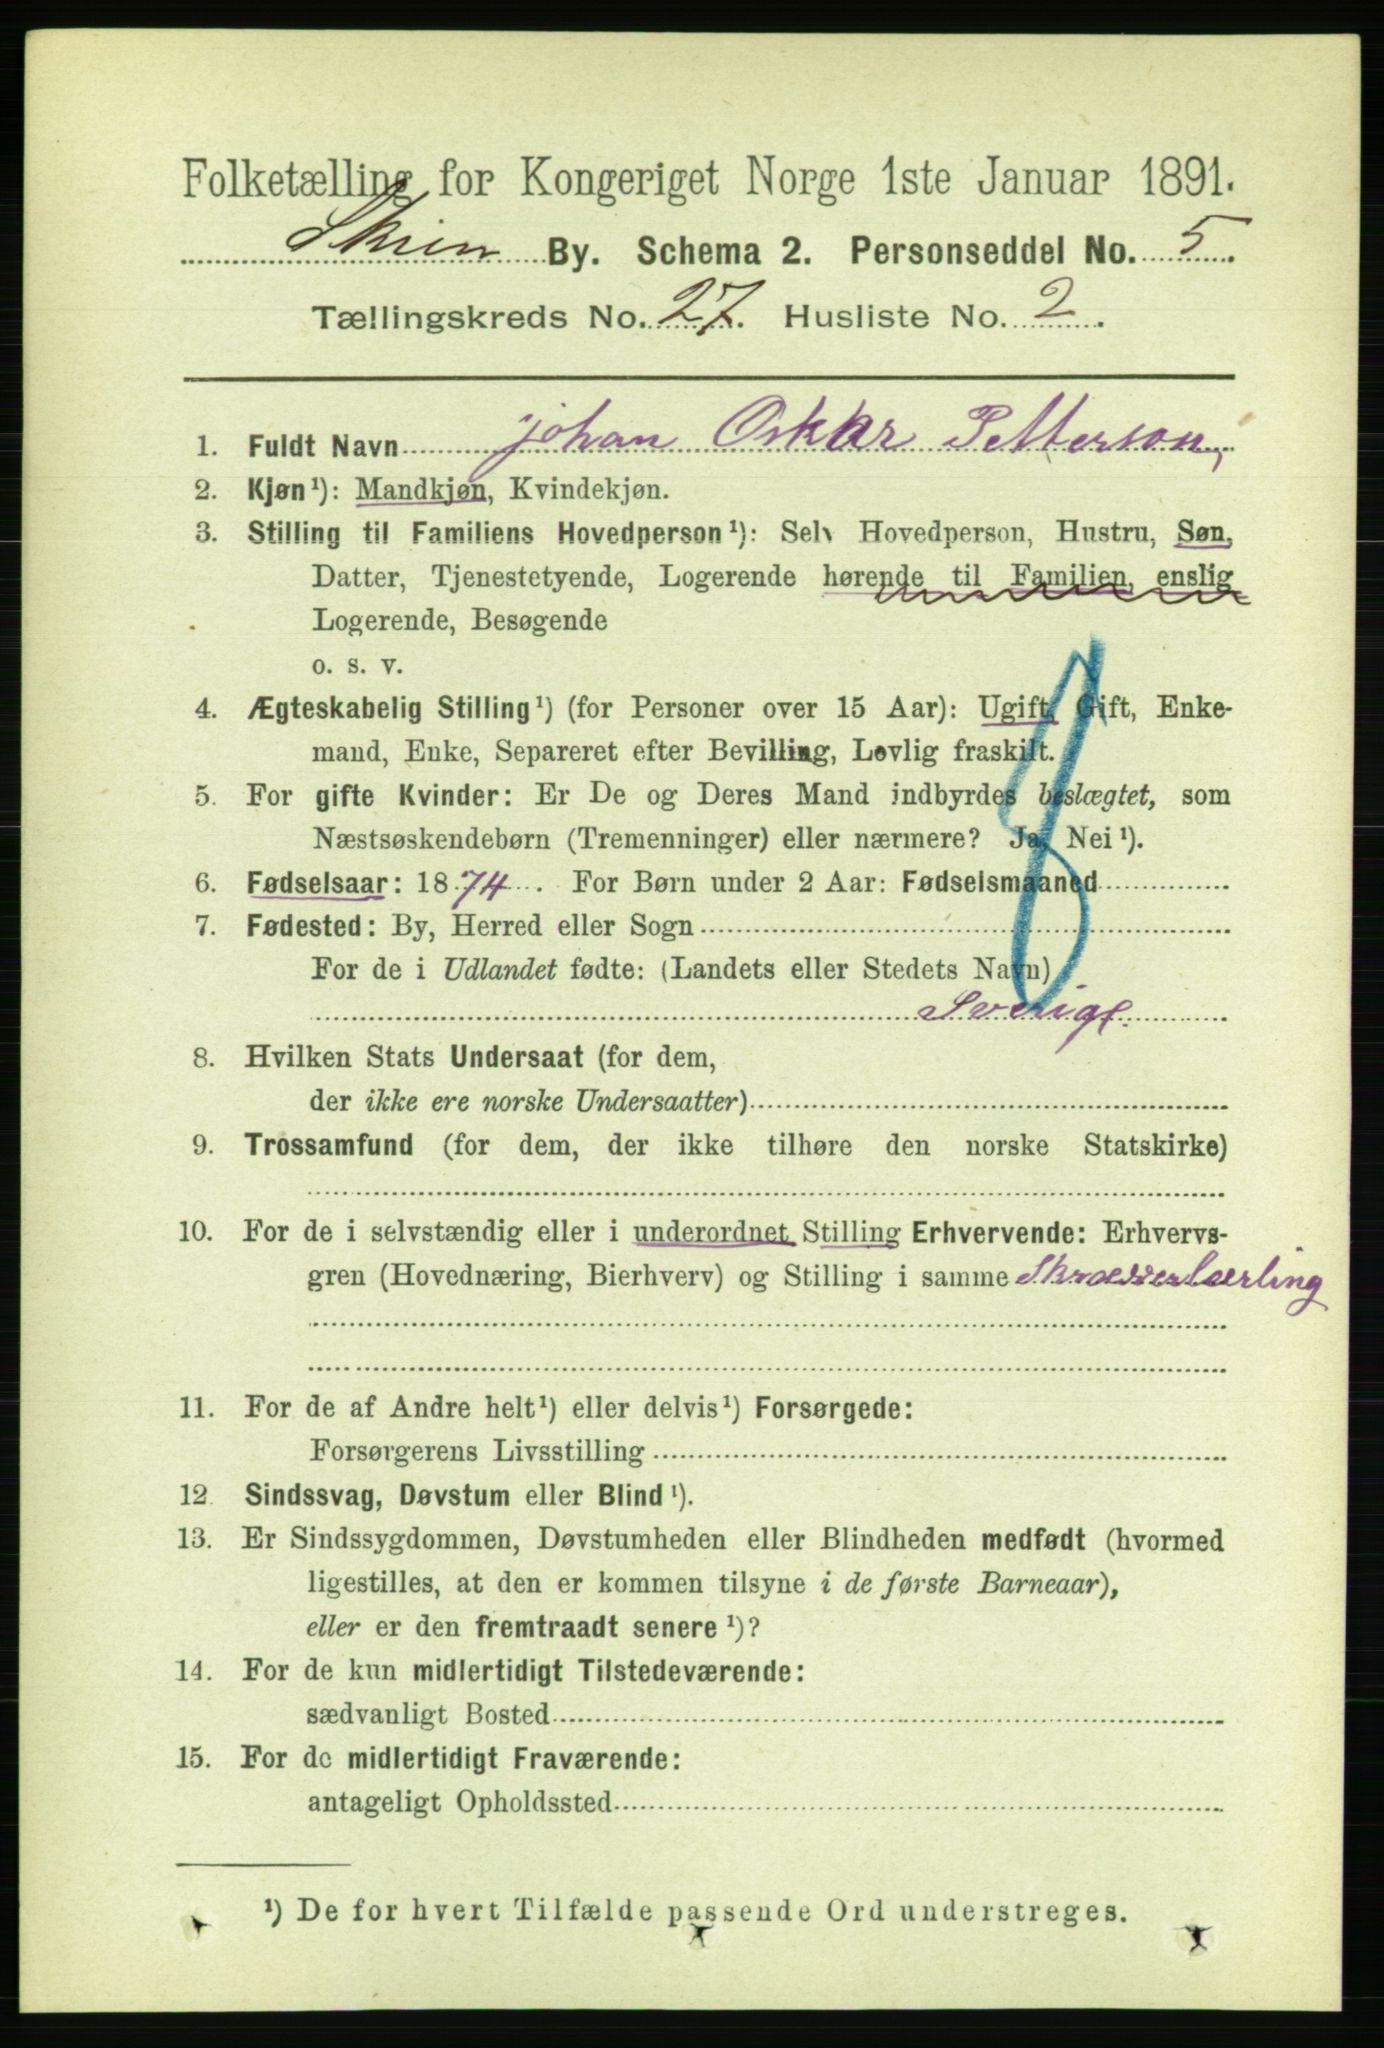 Folketælling for Kongeriget Norge 1ste Januar 1891.
Skien By. Schema 2. Personseddel No. 5.
Tællingskreds No. 27. Husliste No. 2.
1. Fuldt Navn Johan Oskar Petterson,
2. Kjøn¹): Mandkjøn, Kvindekjøn.
3. Stilling til Familiens Hovedperson¹): Selv Hovedperson, Hustru, Søn,
Datter, Tjenestetyende, Logerende hørende til Familien, enslig
Logerende, Besøgende
o. s. v.
4. Ægteskabelig Stilling¹) (for Personer over 15 Aar): Ugift, Gift, Enke-
mand, Enke, Separeret efter Bevilling, Lovlig fraskilt.
5. For gifte Kvinder: Er De og Deres Mand indbyrdes beslægtet, som
Næstsøskendebørn (Tremenninger) eller nærmere? Ja, Nei¹).
6. Fødselsaar: 1874. For Børn under 2 Aar: Fødselsmaaned
7. Fødested: By, Herred eller Sogn
For de i Udlandet fødte: (Landets eller Stedets Navn)
Sverige.
8. Hvilken Stats Undersaat (for dem,
der ikke ere norske Undersaatter)
9. Trossamfund (for dem, der ikke tilhøre den norske Statskirke)
10. For de i selvstændig eller i underordnet Stilling Erhvervende: Erhvervs-
gren (Hovednæring, Bierhverv) og Stilling i samme Skrædderlærling
11. For de af Andre helt¹) eller delvis¹) Forsørgede:
Forsørgerens Livsstilling
12. Sindssvag, Døvstum eller Blind¹).
13. Er Sindssygdommen, Døvstumheden eller Blindheden medfødt (hvormed
ligestilles, at den er kommen tilsyne i de første Barneaar),
eller er den fremtraadt senere¹)?
14. For de kun midlertidigt Tilstedeværende:
sædvanligt Bosted
15. For de midlertidigt Fraværende:
antageligt Opholdssted
¹) De for hvert Tilfælde passende Ord understreges.